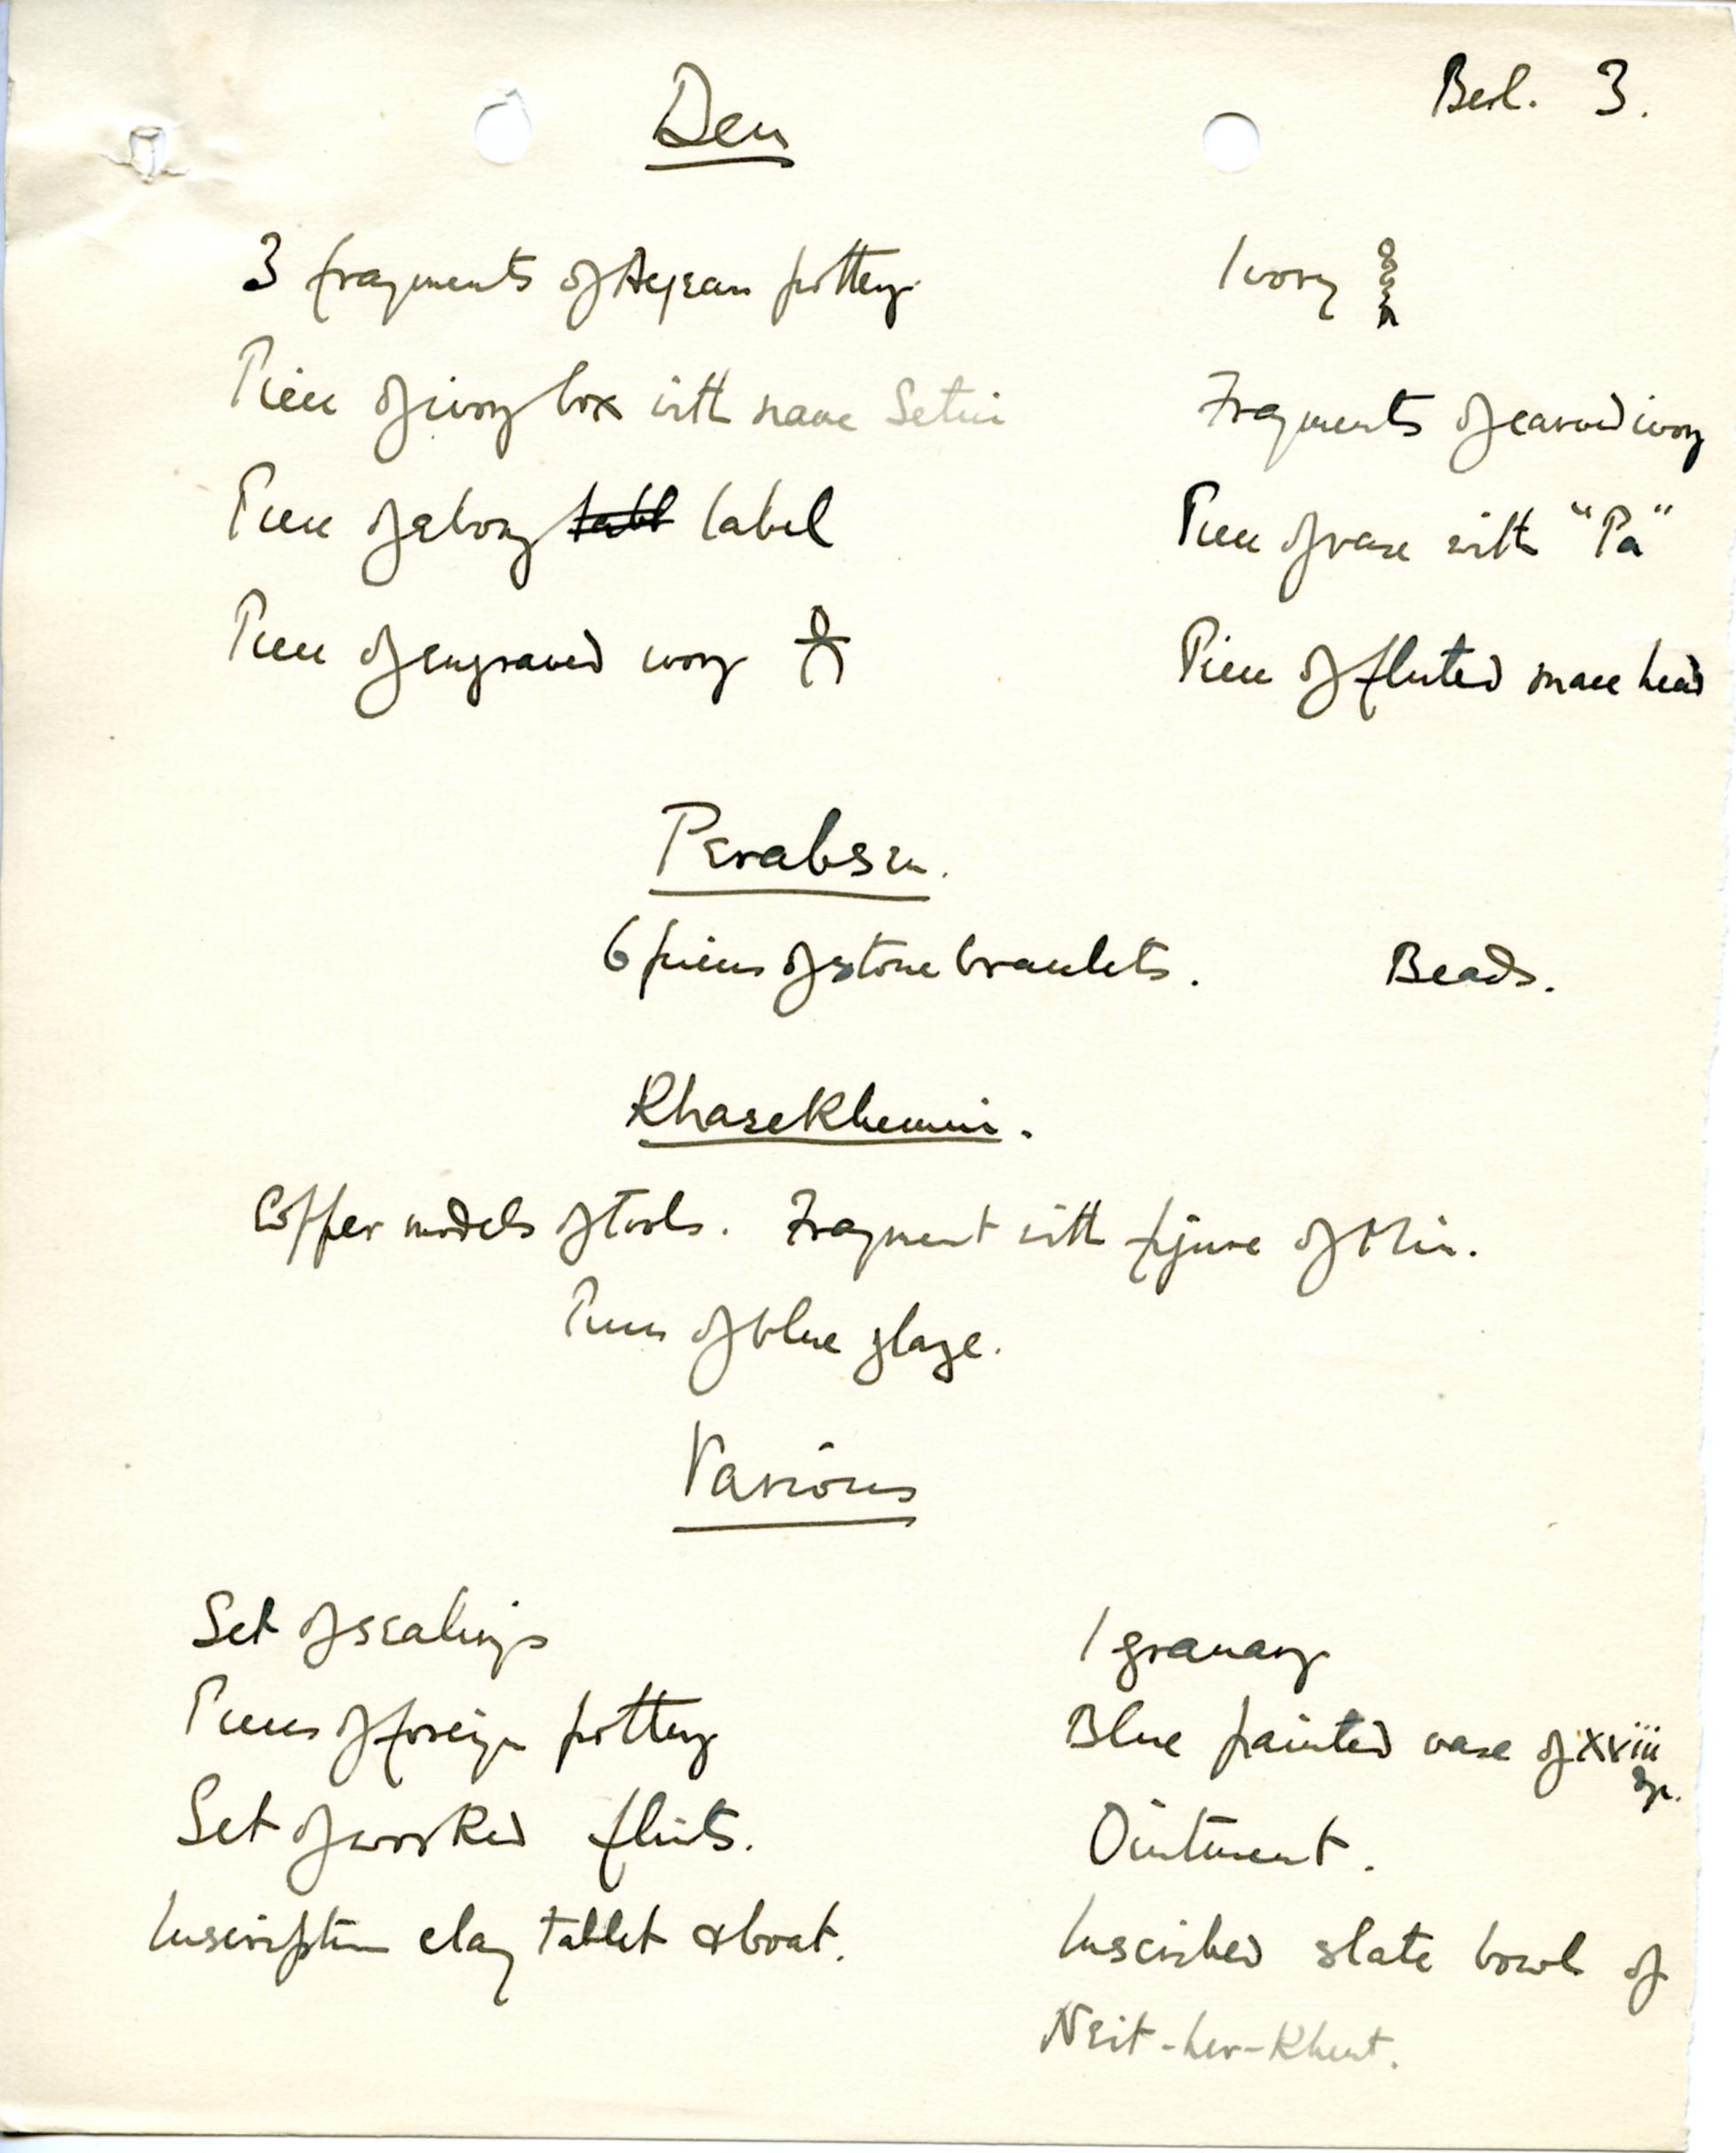 Berl. 3.
Den
3 fragments of Aegean pottery. Ivory
Piece of ivory box with name Setui Fragments of carved ivory
Piece of ebony label Piece of vase with "Pa"
Piece of engraved ivory Piece of fluted mace head
Perabsen.
6 pieces of stone bracelets. Beads.
Khasekhemui.
Copper models of tools. Fragment with figure of Min.
Pieces of blue glaze.
Various
Set of sealings 1 granary
Pieces of foreign pottery Blue painted vase of xviii
Dyn.
Set of worked flints. Ointment.
Inscription clay tablet & boat. Inscribed slate bowl of
Neit-her-Khent.